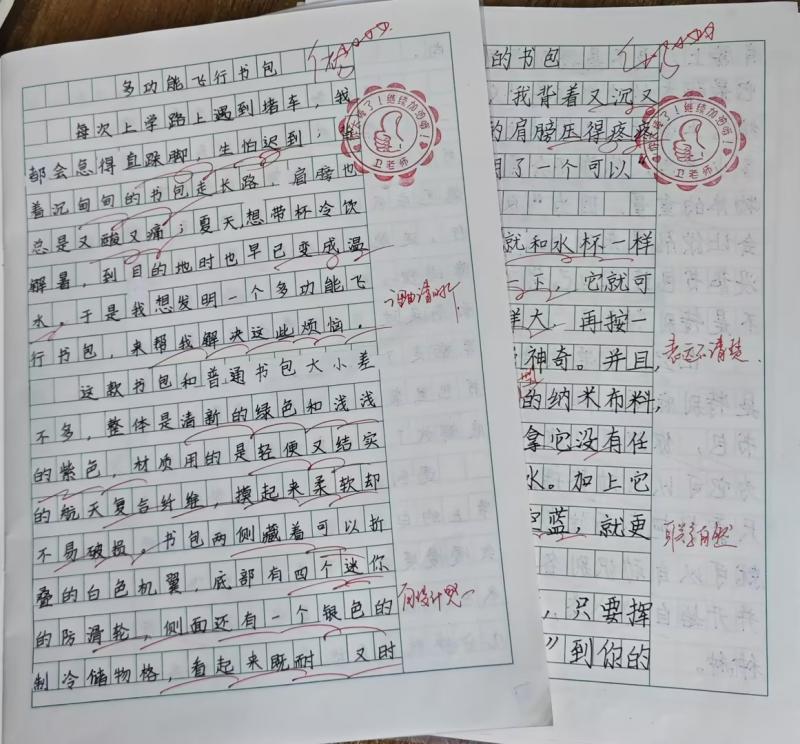 多功能飞行书包
每次上学路上遇到堵车，我
都会急得直跺脚，生怕迟到；
着沉甸甸的书包走长路，肩膀也
总是又酸又痛；夏天，想带杯冷饮
解暑，到目的地时也早已变成温
水。于是我想发明一个多功能飞
行书包，来帮我解决这些烦恼。
这款书包和普通书包大小差
不多，整体是清新的绿色和浅浅
的紫色，材质用的是轻便又结实
的航天复合纤维，摸起来柔软却
不易破损。书包两侧藏着可以折
叠的白色机翼，底部有四个迷你
的防滑轮，侧面还有一个银色的
制冷储物格，看起来既耐 又时
继续加油哦！
卫老师
的书包
我背着又沉又
的肩膀压得疼疼
明了一个可以“
就和水杯一样
一下，它就可
样大，再按一
神奇。并且，
的纳米布料，
拿它没有任
水。加上它
蓝，就更
，只要挥
”到你的
继续加油哦！
卫老师
表达不清楚